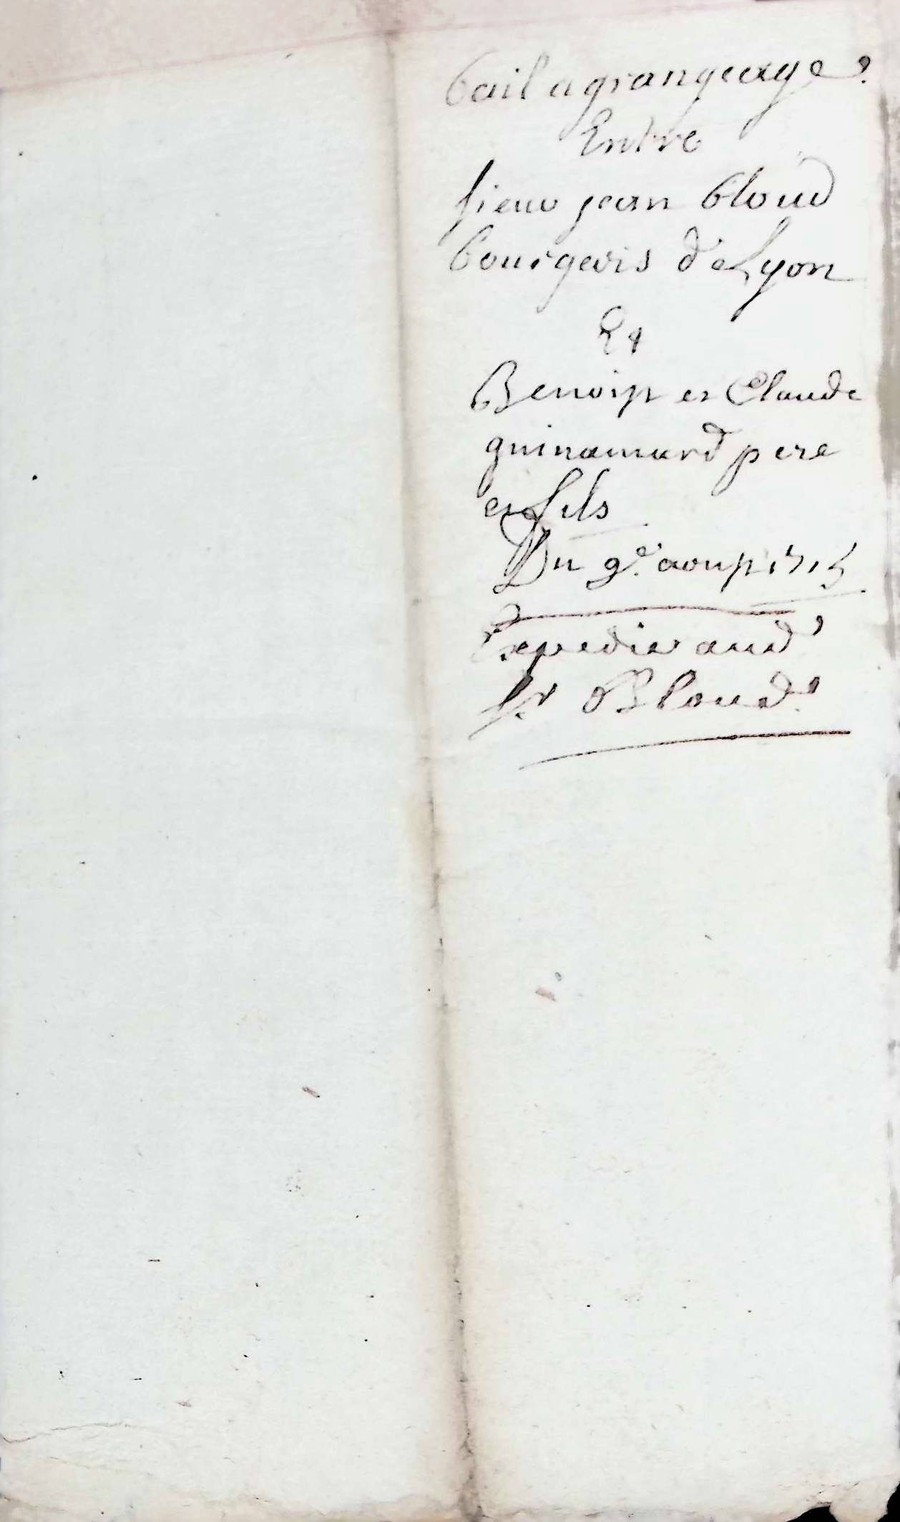 bail a grangeage
Entre
sieur jean bloud
bourgeois de Lyon
Et
Benoist et Claude
guinamard pere
et fils
Du 9e. aoust 1715
Expedié aud
sr Bloud